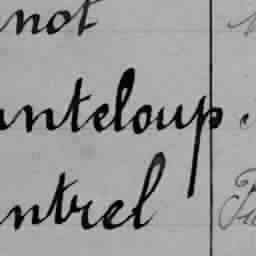 not
anteloup
ntrel